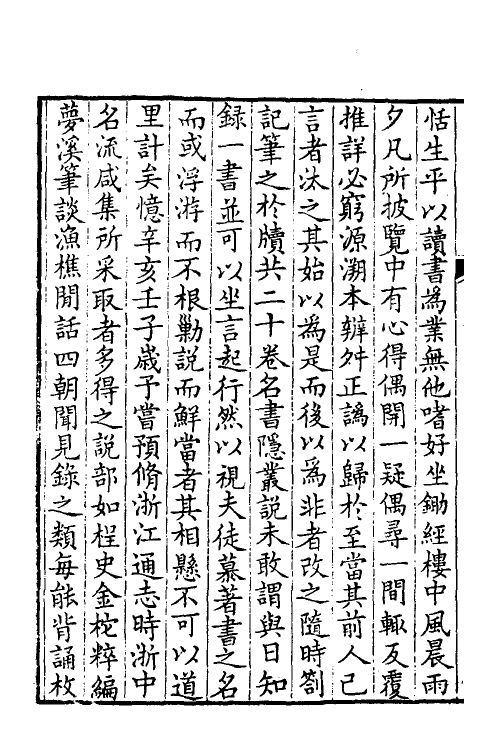 恬生平以讀書爲業無他嗜好坐鋤經樓中風晨雨
夕凡所披覽中有心得偶開一疑偶尋一間輒反覆
推詳必窮源溯本辧舛正譌以歸於至當其前人已
言者汰之其始以爲是而後以爲非者改之隨時劄
記筆之於牘共二十卷名書隱叢說未敢謂與日知
録一書並可以坐言起行然以視夫徒慕著書之名
而或浮游而不根勦說而鮮當者其相懸不可以道
里計矣憶辛亥壬子歲予嘗預脩浙江通志時浙中
名流咸集所采取者多得之說部如桯史金柁粹編
夢溪筆談漁樵閒話四朝聞見錄之類每能背誦枚